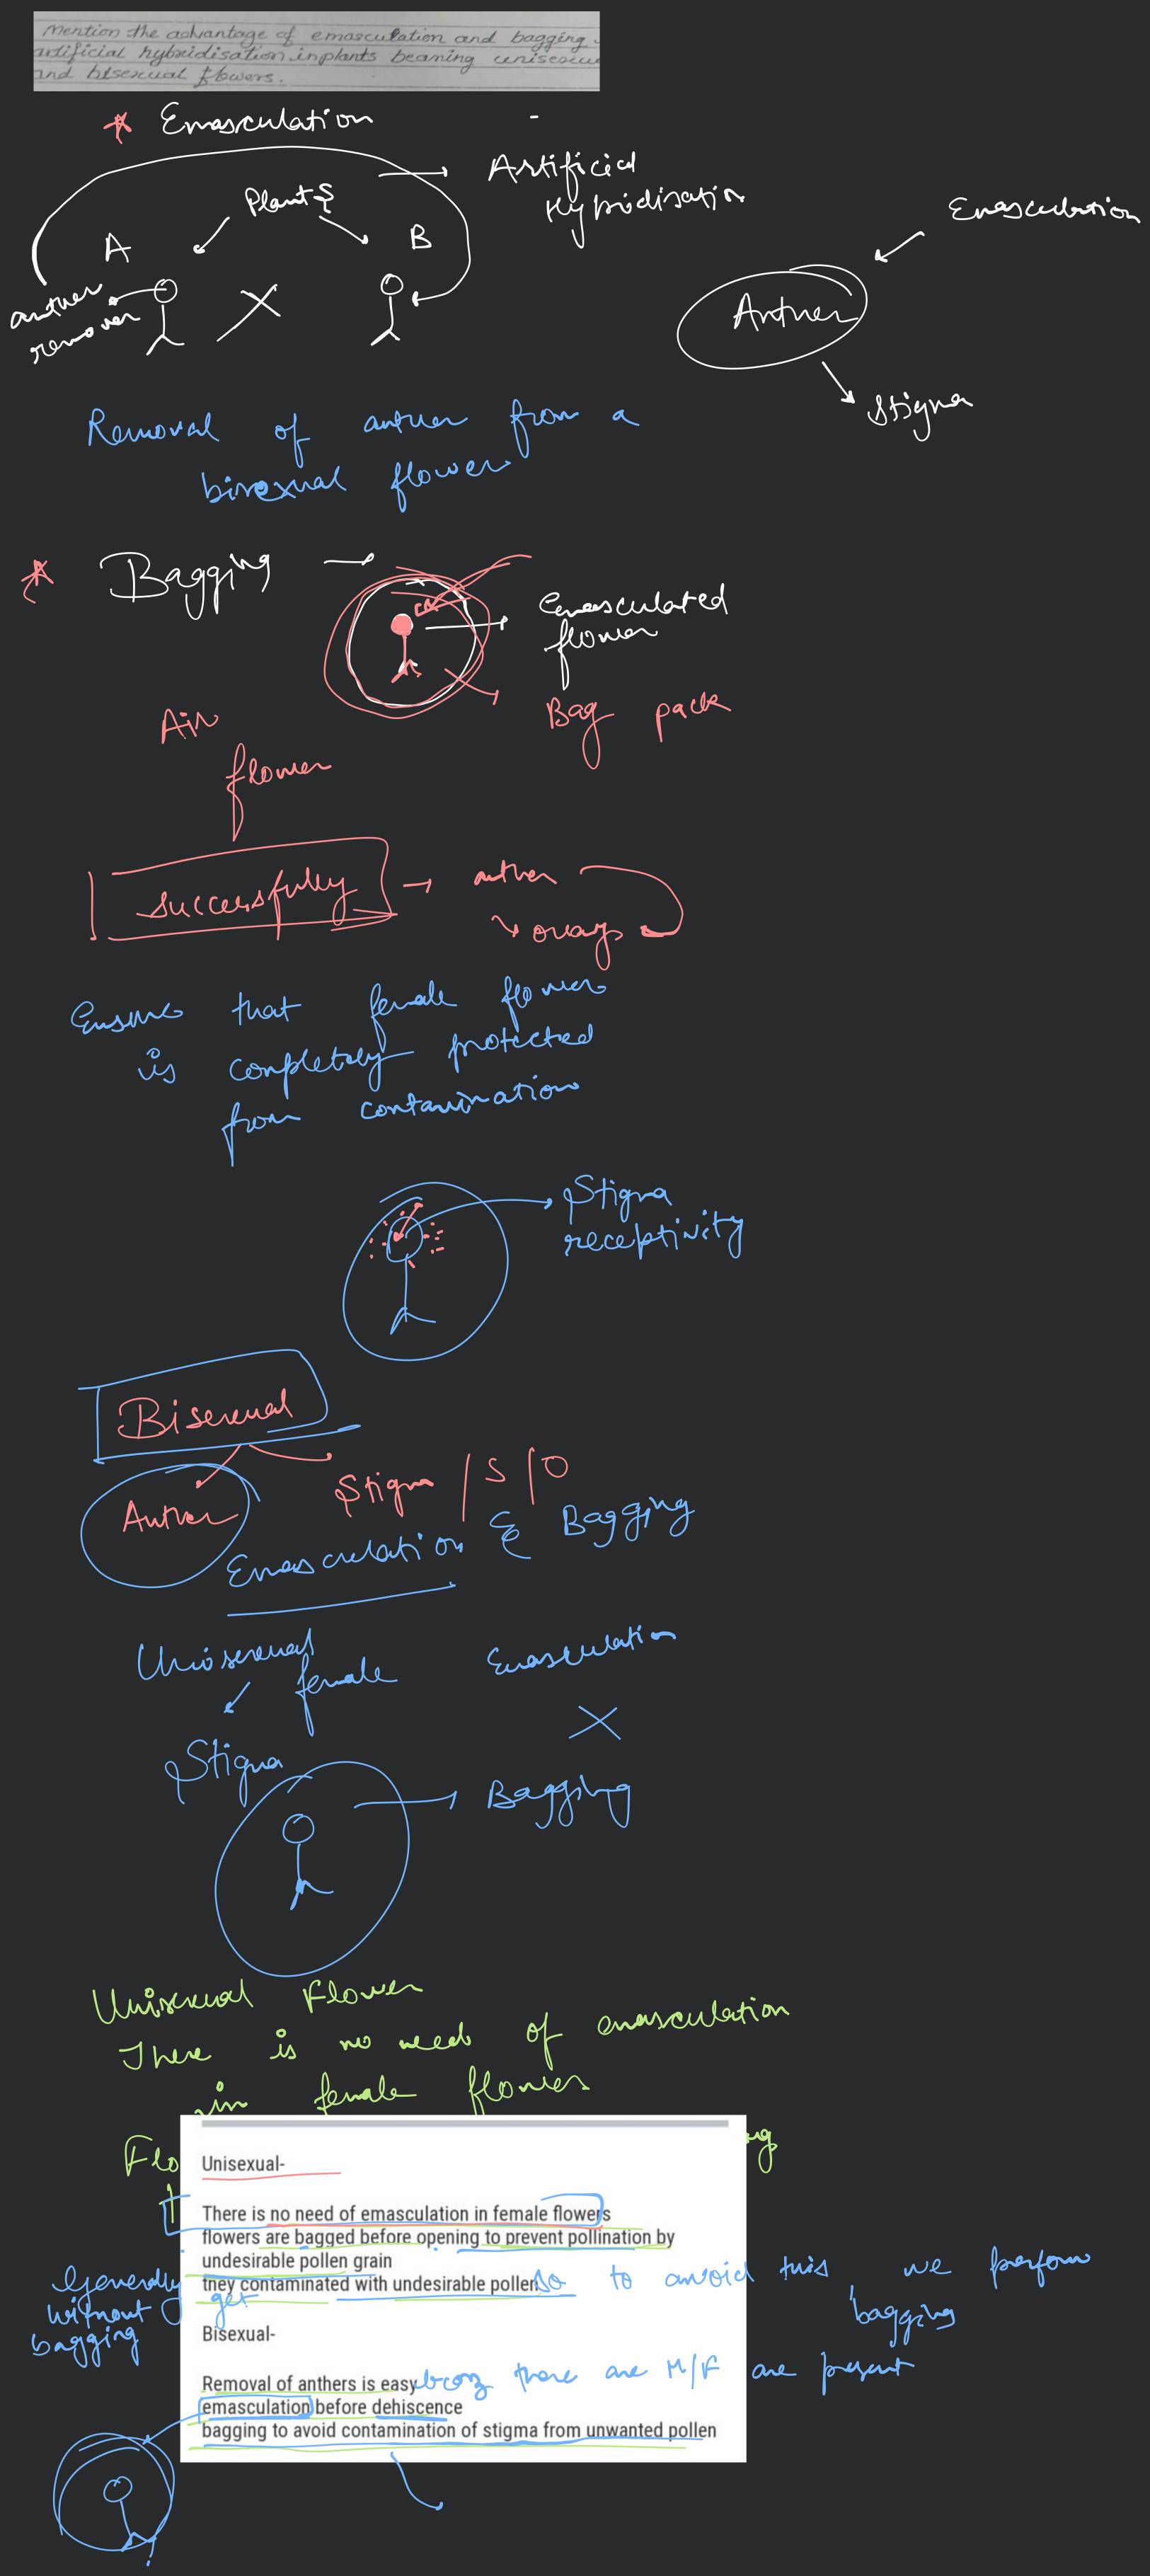 Mention the advantage of emasculation and bagging
artificial hybridisation in plants bearing unisexu
and bisexual flowers.
* Emasculation -
Artificial
Hybridisation
Plants
A B
anther
remover
Emasculation
Anther
Stigma
Removal of anther from a
bisexual flower
* Bagging
Emasculated
flower
Bag pack
Air
flower
Successfully → anther
ovary
Ensure that female flower
is completely protected
from contamination
Stigma
receptivity
Bisexual
Anther Stigma / S / O
Emasculation & Bagging
Unisexual
female
Emasculation
Stigma
Bagging
Unisexual Flower
There is no need of emasculation
in female flowers
Flo ng
Unisexual-
There is no need of emasculation in female flowers
flowers are bagged before opening to prevent pollination by
undesirable pollen grain
they contaminated with undesirable pollen so to avoid this, we perform
bagging
Generally get
without
bagging
Bisexual-
Removal of anthers is easy bcoz there are M/F are present
emasculation before dehiscence
bagging to avoid contamination of stigma from unwanted pollen